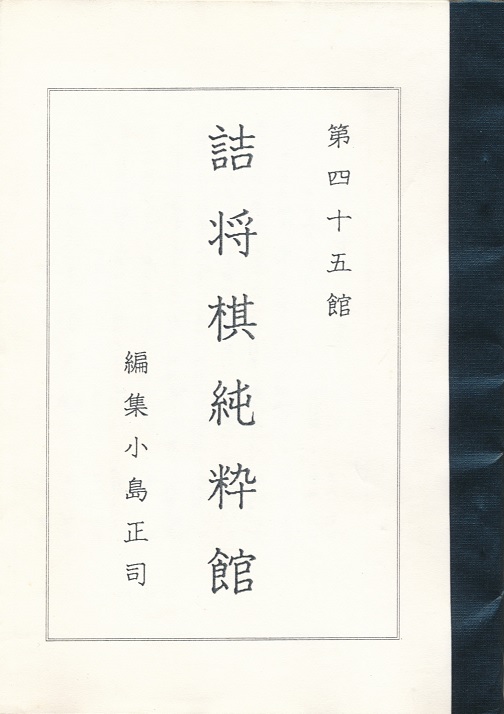 第四十五館
詰将棋純粋館
編集小島正司